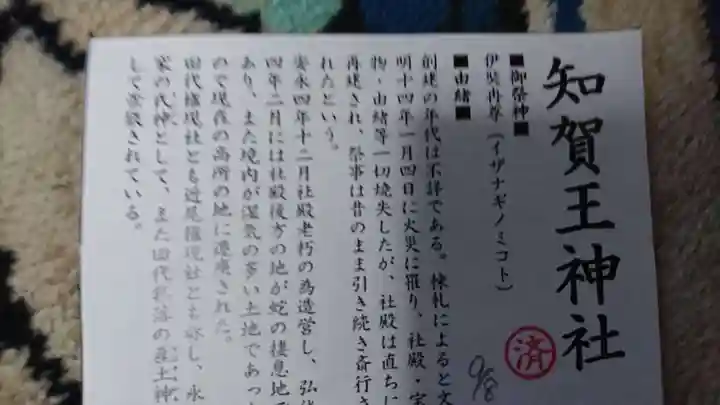 知賀王神社
■御祭神■
伊奘冉尊(イザナギノミコト)
■由緒■
創建の年代は不詳である。棟札によると文
明十四年一月四日に火災に罹り、社殿・宝
物・由緒等一切焼失したが、社殿は直ちに
再建され、祭事は昔のまま引き続き斎行さ
れたという。
安永四年十二月社殿老朽の為造営し、弘化
四年二月には社殿後方の地が蛇の棲息地で
あり、また境内が湿気の多い土地であった
ので現在の高所の地に遷座された。
田代権現社とも近尾権現社とも称し、永
家の氏神として、また田代部落の産土神
して崇敬されている。
済
9/8